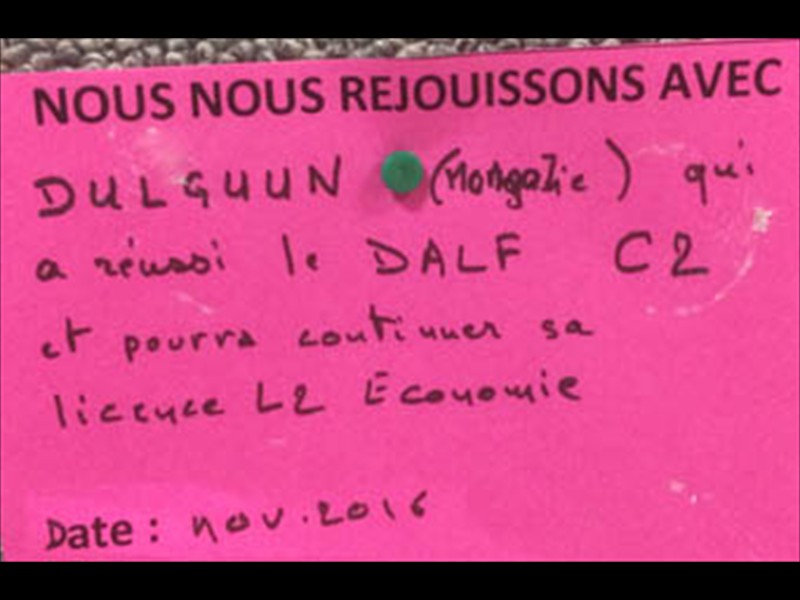 NOUS NOUS REJOUISSONS AVEC
DULGUUN (Mongolie) qui
a réussi le DALF C2
et pourra continuer sa
licence L2 Economie
Date : nov. 2016